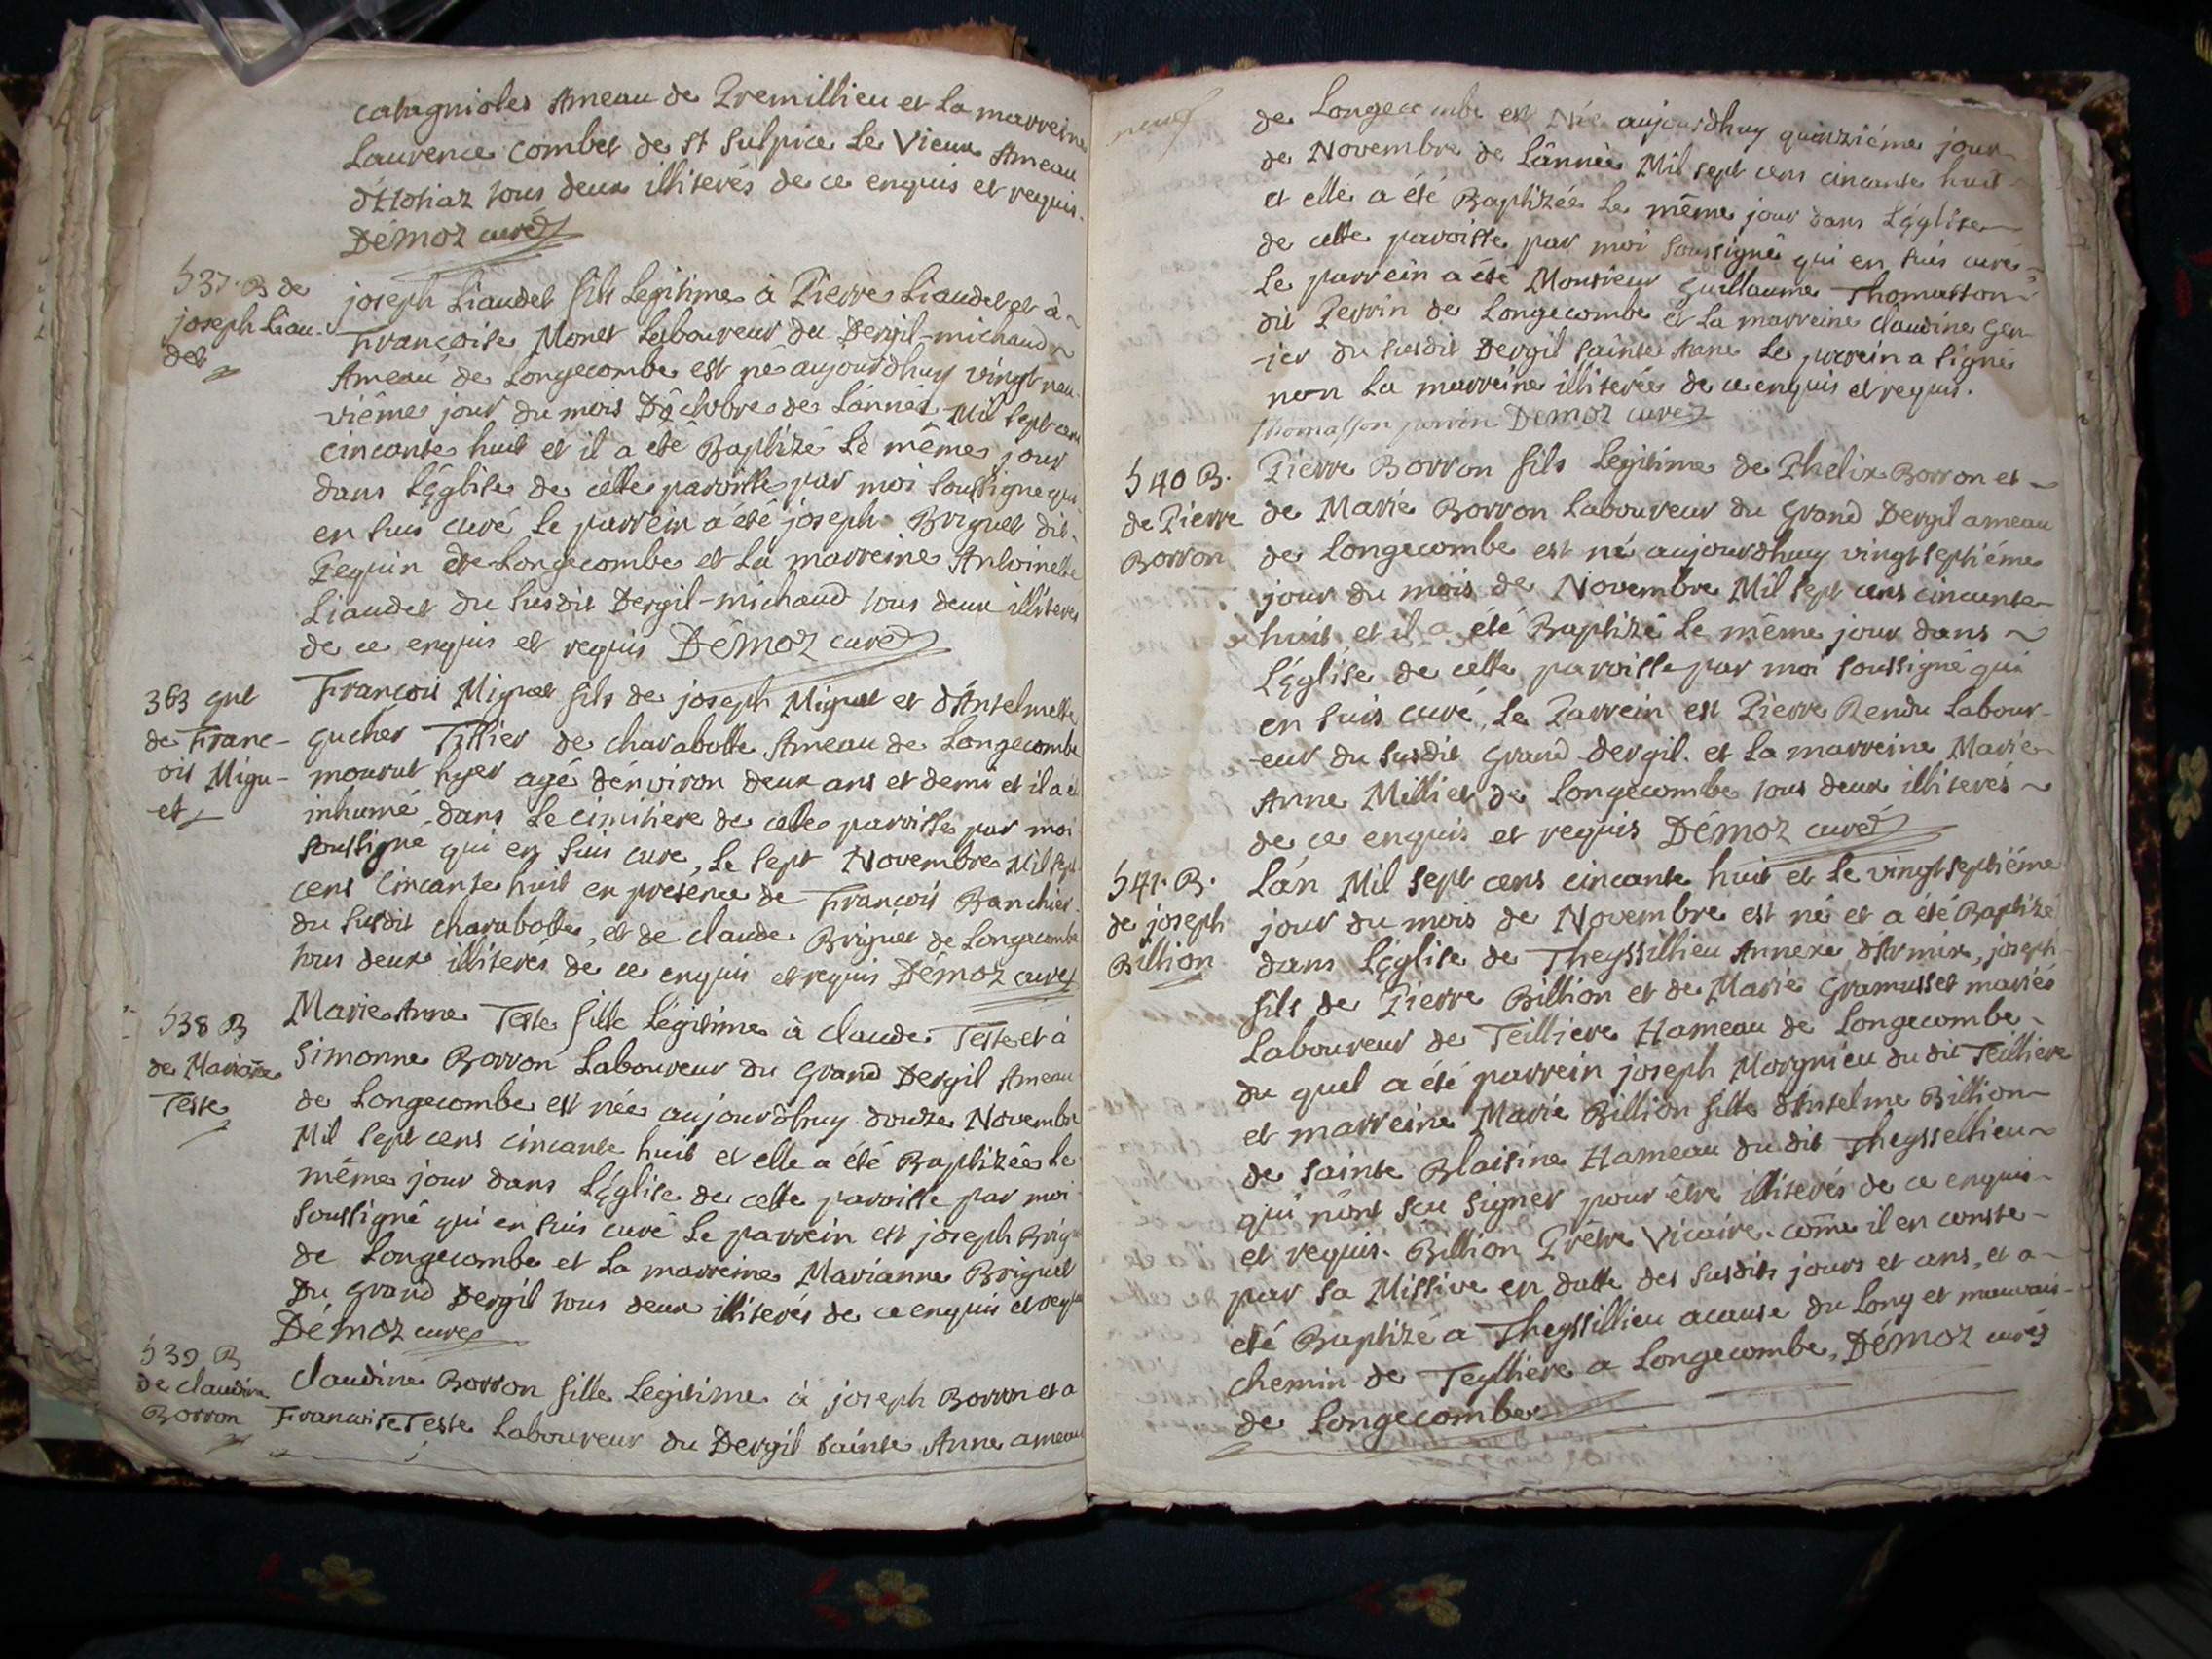 catagnioles Ameau de Premillieu et La marreine
Laurence Combet de St Sulpice Le Vieux Ameau
d'Hotiaz tous deux illiterés de ce enquis et requis.
Démoz curé
537. B de
joseph Liau-
det
joseph Liaudet fils Legitime à Pierre Liaudet et à
Françoise Monet Laboureur du Dergil-michaud
Ameau de Longecombe est né aujourdhuy vingt neu-
vième jour du mois D'octobre de L'année Mil sept cens
cincante huit et il a eté Baptizé Le même jour
dans L'Eglise de cette paroisse par moi soussigné qui
en suis curé Le parrein a été joseph Briguet dit
Pequin de Longecombe et La marreine Antoinette
Liaudet du susdit Dergil-michaud tous deux illiterés
de ce enquis et requis Démoz curé
363 sul
de Franc-
ois Migu-
et
François Miguet fils de joseph Miguet et d'Antelmette
Gucher Tissier de charabotte Ameau de Longecombe
mourut hyer agé dénviron deux ans et demi et il a é
inhumé dans Le cimitiere de cette paroisse par moi
soussigné qui en suis curé, Le sept Novembre Mil sept
cens Cincante huit en presence de François Banchier
du susdit charabotte, et de claude Briguet de Longecombe
tous deux illiterés de ce enquis et requis Démoz curé
538 B
de Marianne
Teste
Marie Anne Teste fille Légitime à claude Teste et à
Simonne Borron Laboureur du Grand Dergil Ameau
de Longecombe est née aujourdhuy douze Novembre
Mil sept cens cincante huit et elle a été Baptizée Le
même jour dans L'Eglise de cette paroisse par moi
soussigné qui en suis curé Le parrein est joseph Briguet
de Longecombe et La marreine Marianne Briguet
Du Grand Dergil tous deux illiterés de ce enquis et requis
Démoz curé
539 B
de claudine
Borron
claudine Borron fille Legitime à joseph Borron et a
Francoise Teste Laboureur du Dergil sainte Anne ameau
neuf
de Longecombe est Née aujourdhuy quinziéme jour
de Novembre de L'année Mil sept cens cincante huit
et elle a été Baptizée Le même jour dans L'Eglise
de cette paroisse par moi soussigné qui en suis curé
Le parrein a été Monsieur Guillaume Thomasson
dit Perrin de Longecombe et La marreine claudine Gen-
-ier du susdit Dergil sainte Anne Le parrein a signé
non La marreine illiterée de ce enquis et requis.
Thomasson parrin Démoz curé
540 B.
de Pierre
Borron
Pierre Borron fils Legitime de Phelix Borron et
de Marie Borron Laboureur du Grand Dergil ameau
de Longecombe est né aujourdhuy vingt septiéme
jour du mois de Novembre Mil sept cens cincante
huit et il a été Baptizé Le même jour dans
L'Eglise de cette paroisse par moi soussigné qui
en suis curé, Le Parrein est Pierre Rendu Labour-
-eur du susdit Grand dergil. et La marreine Marie
Anne Milliet de Longecombe tous deux illiterés
de ce enquis et requis Démoz curé
541. B.
de joseph
Billion
L'án Mil sept cens cincante huit et Le vingt septiéme
jour du mois de Novembre est né et a été Baptizé
dans L'Eglise de Theyssillieu Annexe d'Armix, joseph
fils de Pierre Billion et de Marie Gramusset mariés
Laboureur de Teilliere Hameau de Longecombe
du quel a été parrein joseph Morgnieu du dit Teilliere
et marreine Marie Billion fille d'Antelme Billion
de sainte Blaisine Hameau du dit Theyssellieu
qui n'ont sçu signer pour être illiterés de ce enquis
et requis. Billion Prêtre Vicaire. come il en conste
par sa Missive en datte des susdits jours et ans, et a
été Baptizé a Theyssillieu acause du Long et mauvais
chemin de Teylliere a Longecombe, Démoz curé
de Longecombe